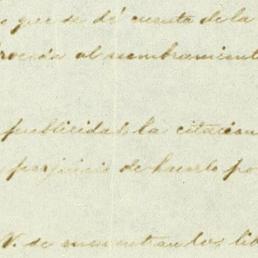 o que se dé cuenta de la
proceda al nombramiento
publicidad la citacion
perjuicio de hacerlo po
V. se encuentran los lib